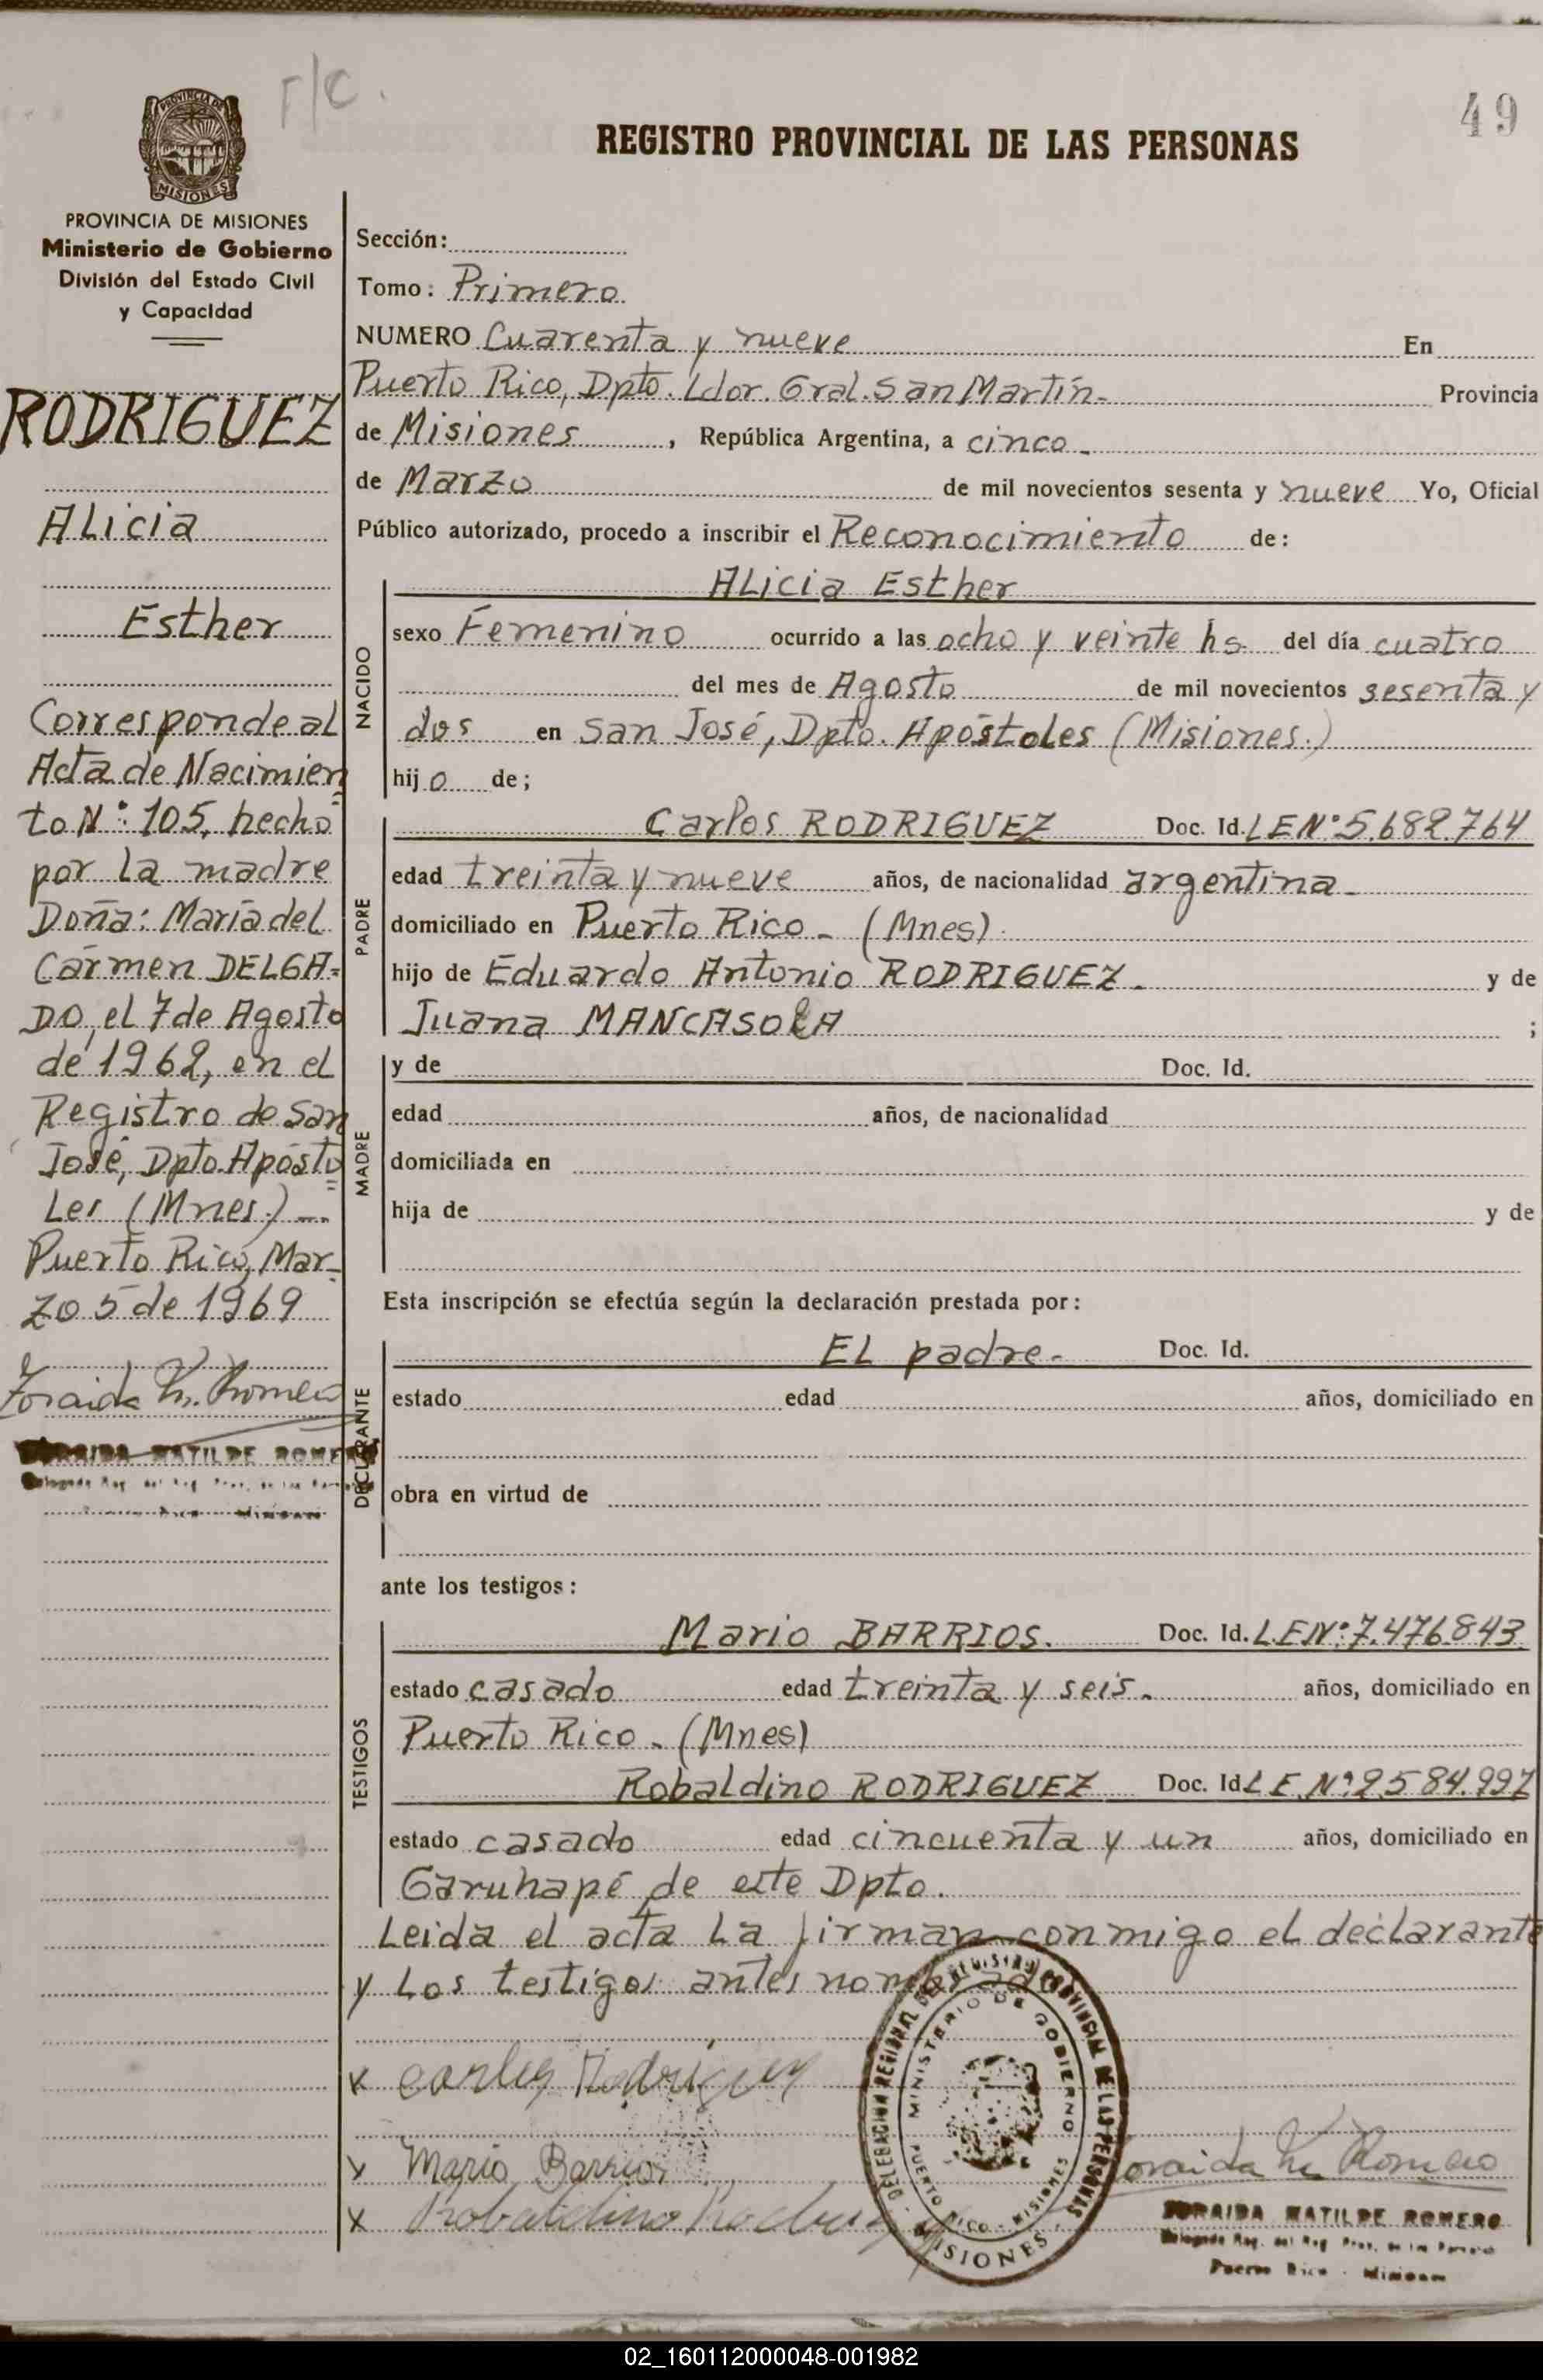 F/C.
49
PROVINCIA DE
MISIONES
REGISTRO PROVINCIAL DE LAS PERSONAS
PROVINCIA DE MISIONES
Ministerio de Gobierno
División del Estado Civil
y Capacidad
RODRIGUEZ
Alicia
Esther
Corresponde al
Acta de Nacimien
to N°: 105, hecho
por la madre
Doña: María del
Cármen DELGA-
DO, el 7 de Agosto
de 1962, en el
Registro de San
José, Dpto. Apósto
les (Mnes.)
Puerto Rico, Mar-
zo 5 de 1969
Zoraida M. Romero
ZORAIDA MATILDE ROMERO
Sección:
Tomo: Primero
NUMERO Cuarenta y nueve En
Puerto Rico, Dpto. Ldor. Gral. San Martín- Provincia
de Misiones, República Argentina, a cinco-
de Marzo de mil novecientos sesenta y nueve Yo, Oficial
Público autorizado, procedo a inscribir el Reconocimiento de:
NACIDO
Alicia Esther
sexo Femenino ocurrido a las ocho y veinte hs. del día cuatro
del mes de Agosto de mil novecientos sesenta y
dos en San José, Dpto. Apóstoles (Misiones.)
hijo de;
PADRE
Carlos RODRIGUEZ Doc. Id. LEN° 5.682.764
edad treinta y nueve años, de nacionalidad argentina-
domiciliado en Puerto Rico- (Mnes)
hijo de Eduardo Antonio RODRIGUEZ- y de
Juana MANCASOLA ;
MADRE
y de Doc. Id.
edad años, de nacionalidad
domiciliada en
hija de y de
Esta inscripción se efectúa según la declaración prestada por:
DECLARANTE
El padre- Doc. Id.
estado edad años, domiciliado en
obra en virtud de
ante los testigos:
TESTIGOS
Mario BARRIOS. Doc. Id. L.EN°: 7.476.843
estado casado edad treinta y seis- años, domiciliado en
Puerto Rico- (Mnes)
Robaldino RODRIGUEZ Doc. Id L E N° 2584.997
estado casado edad cincuenta y un años, domiciliado en
Garuhapé de este Dpto.
Leida el acta la firman conmigo el declarante
y los testigos antes nombrados
x Carlos Rodriguez
x Mario Barrios
x Robaldino Rodriguez
DELEGACION REGIONAL DEL REGISTRO PROVINCIAL DE LAS PERSONAS
MINISTERIO DE GOBIERNO
PUERTO RICO - MISIONES
MISIONES
Zoraida M. Romero
ZORAIDA MATILDE ROMERO
Delegada Reg. del Reg. Prov. de las Personas
Puerto Rico - Misiones
02_160112000048-001982